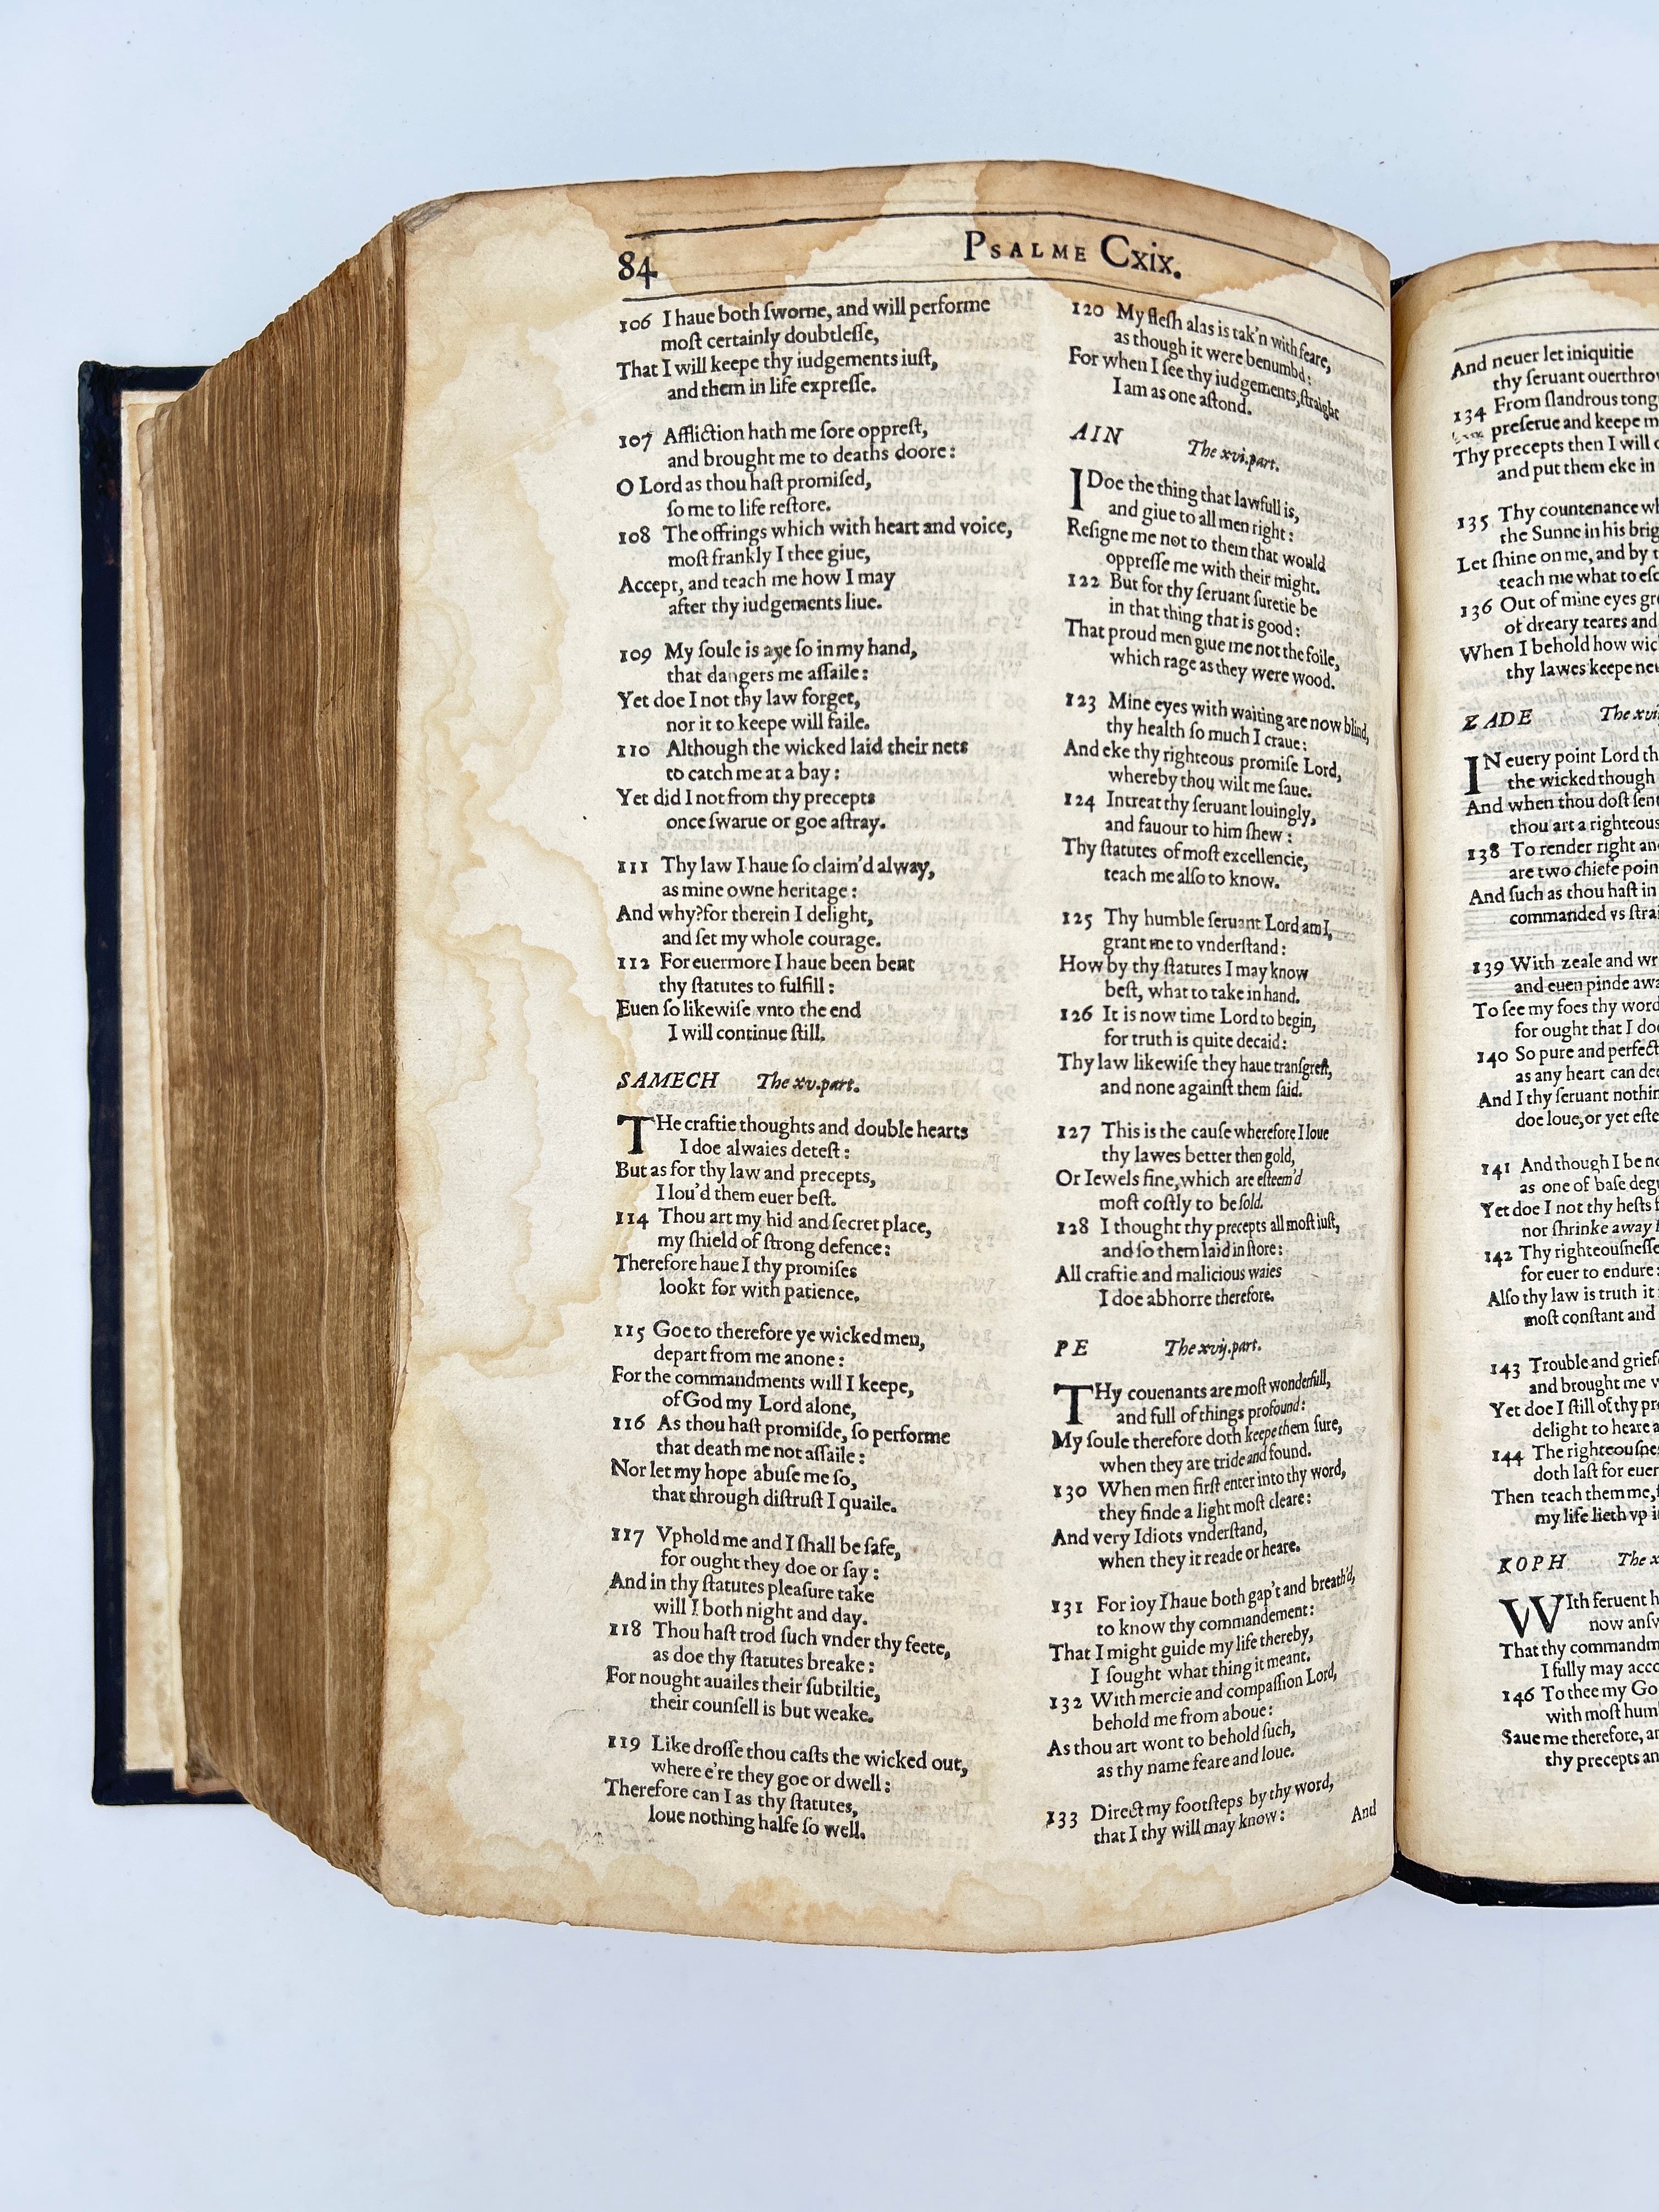 84
PSALME Cxix.
106 I haue both ſworne, and will performe
moſt certainly doubtleſſe,
That I will keepe thy iudgements iuſt,
and them in life expreſſe.
107 Affliction hath me ſore oppreſt,
and brought me to deaths doore:
O Lord as thou haſt promiſed,
ſo me to life reſtore.
108 The offrings which with heart and voice,
moſt frankly I thee giue,
Accept, and teach me how I may
after thy iudgements liue.
109 My ſoule is aye ſo in my hand,
that dangers me aſſaile:
Yet doe I not thy law forget,
nor it to keepe will faile.
110 Although the wicked laid their nets
to catch me at a bay:
Yet did I not from thy precepts
once ſwarue or goe aſtray.
111 Thy law I haue ſo claim'd alway,
as mine owne heritage:
And why? for therein I delight,
and ſet my whole courage.
112 For euermore I haue been bent
thy ſtatutes to fulfill:
Euen ſo likewiſe vnto the end
I will continue ſtill.
SAMECH The xv. part.
THe craftie thoughts and double hearts
I doe alwaies deteſt:
But as for thy law and precepts,
I lou'd them euer beſt.
114 Thou art my hid and ſecret place,
my ſhield of ſtrong defence:
Therefore haue I thy promiſes
lookt for with patience.
115 Goe to therefore ye wicked men,
depart from me anone:
For the commandments will I keepe,
of God my Lord alone,
116 As thou haſt promiſde, ſo performe
that death me not aſſaile:
Nor let my hope abuſe me ſo,
that through diſtruſt I quaile.
117 Vphold me and I ſhall be ſafe,
for ought they doe or ſay:
And in thy ſtatutes pleaſure take
will I both night and day.
118 Thou haſt trod ſuch vnder thy feete,
as doe thy ſtatutes breake:
For nought auailes their ſubtiltie,
their counſell is but weake.
119 Like droſſe thou caſts the wicked out,
where e're they goe or dwell:
Therefore can I as thy ſtatutes,
loue nothing halfe ſo well.
120 My fleſh alas is tak'n with feare,
as though it were benumbd:
For when I ſee thy iudgements, ſtraight
I am as one aſtond.
AIN The xvi. part.
I Doe the thing that lawfull is,
and giue to all men right:
Reſigne me not to them that would
oppreſſe me with their might.
122 But for thy ſeruant ſuretie be
in that thing that is good:
That proud men giue me not the foile,
which rage as they were wood.
123 Mine eyes with waiting are now blind,
thy health ſo much I craue:
And eke thy righteous promiſe Lord,
whereby thou wilt me ſaue.
124 Intreat thy ſeruant louingly,
and fauour to him ſhew:
Thy ſtatutes of moſt excellencie,
teach me alſo to know.
125 Thy humble ſeruant Lord am I,
grant me to vnderſtand:
How by thy ſtatutes I may know
beſt, what to take in hand.
126 It is now time Lord to begin,
for truth is quite decaid:
Thy law likewiſe they haue tranſgreſt,
and none againſt them ſaid.
127 This is the cauſe wherefore I loue
thy lawes better then gold,
Or Iewels fine, which are eſteem'd
moſt coſtly to be ſold.
128 I thought thy precepts all moſt iuſt,
and ſo them laid in ſtore:
All craftie and malicious waies
I doe abhorre therefore.
PE The xvij. part.
THy couenants are moſt wonderfull,
and full of things profound:
My ſoule therefore doth keepe them ſure,
when they are tride and found.
130 When men firſt enter into thy word,
they finde a light moſt cleare:
And very Idiots vnderſtand,
when they it reade or heare.
131 For ioy I haue both gap't and breath'd,
to know thy commandement:
That I might guide my life thereby,
I ſought what thing it meant.
132 With mercie and compaſſion Lord,
behold me from aboue:
As thou art wont to behold ſuch,
as thy name feare and loue.
133 Direct my footſteps by thy word,
that I thy will may know:
And
And neuer let iniquitie
thy ſeruant
134 From ſlandrous
preſerue and keepe
Thy precepts then I will
and put them eke in
135 Thy countenance
the Sunne in his
Let ſhine on me, and by
teach me what to
136 Out of mine eyes
of dreary teares and
When I behold how
thy lawes keepe
ZADE The
IN euery point Lord
the wicked though
And when thou doſt
thou art a righteous
138 To render right
are two chiefe
And ſuch as thou haſt in
commanded vs
139 With zeale and
and euen pinde
To ſee my foes thy
for ought that I
140 So pure and
as any heart can
And I thy ſeruant
doe loue, or yet
141 And though I be
as one of baſe
Yet doe I not thy heſts
nor ſhrinke away
142 Thy
for euer to endure:
Alſo thy law is truth it
moſt conſtant and
143 Trouble and
and brought me
Yet doe I ſtill of thy
delight to heare
144 The
doth laſt for euer
Then teach them me,
my life lieth vp
KOPH The
WIth feruent
now
That thy
I fully may
146 To thee my
with moſt
Saue me therefore,
thy precepts